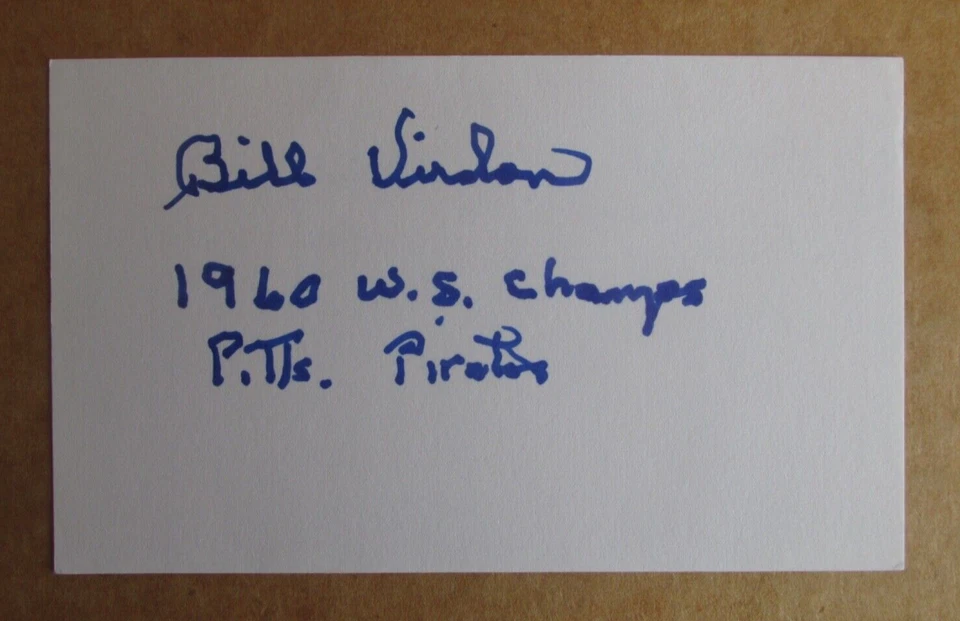 Bill Virdon
1960 W.S. Champs
Pitts. Pirates